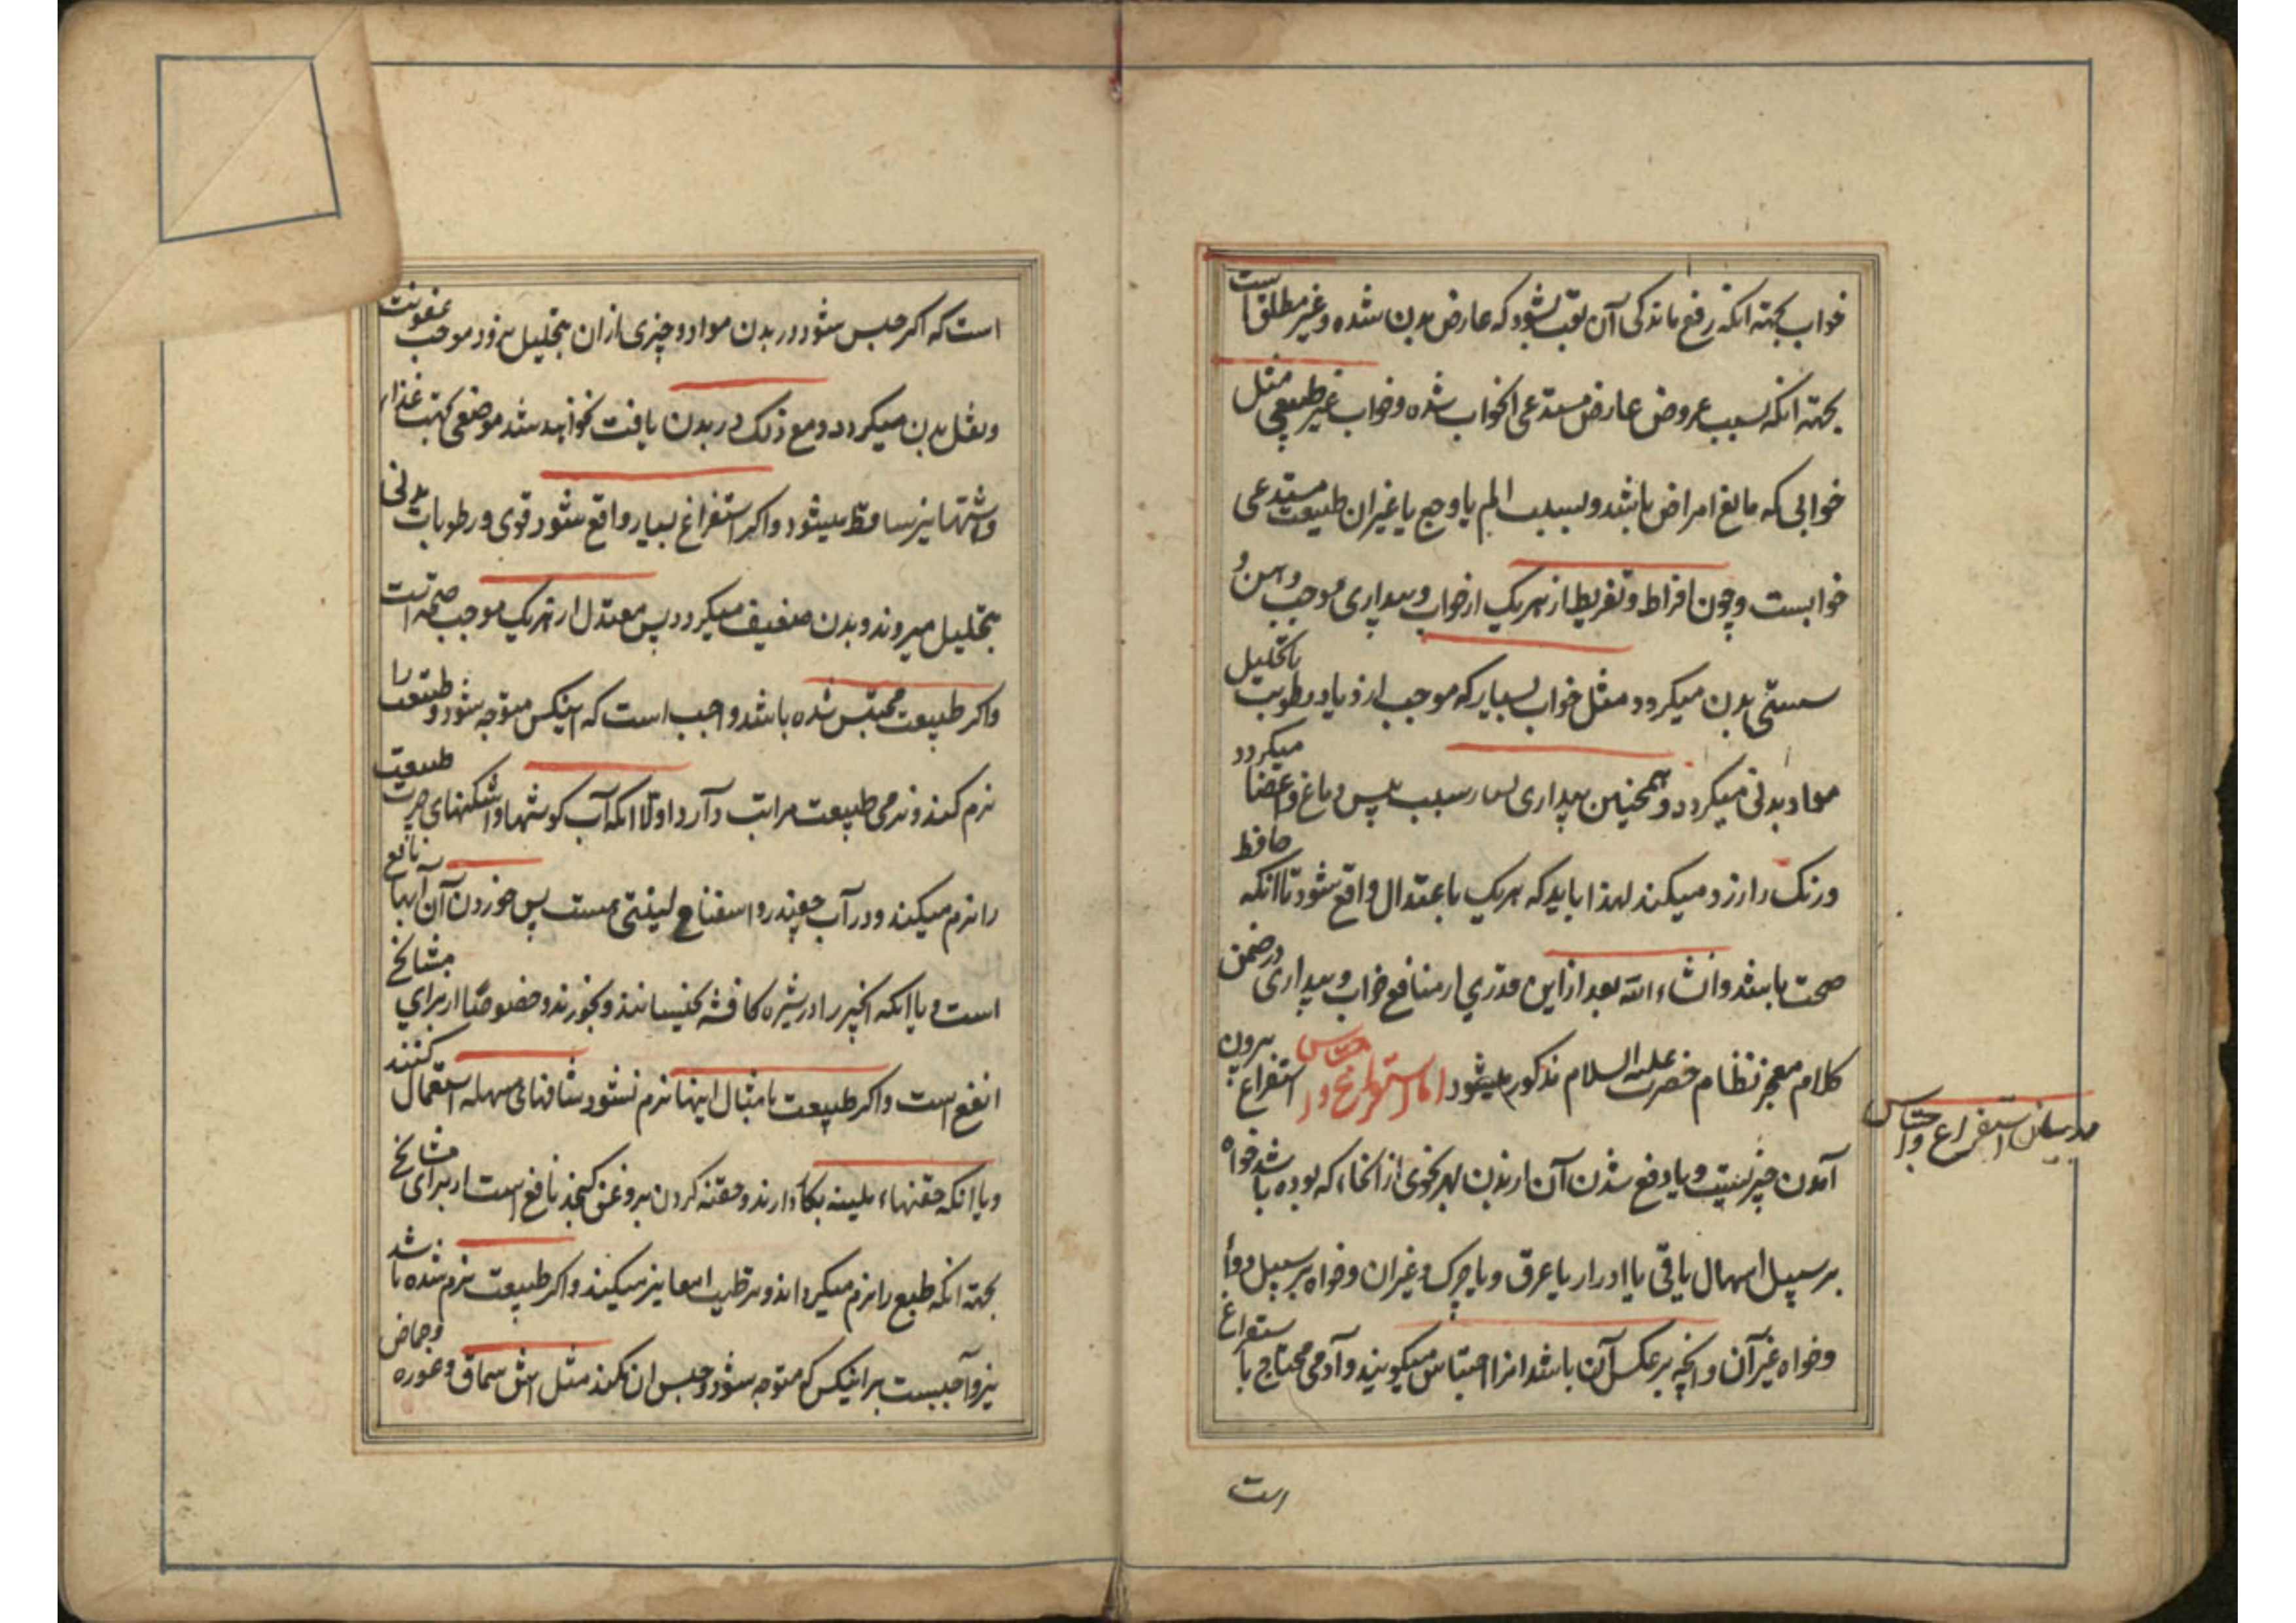 خواب بجهة انکه رفع ماندکی آن تعب بشود که عارض بدن شده و غیر مطلق است
بجهة انکه بسبب عروض عارض مستدعی انخواب شده و خواب غیر طبیعی مثل
خوابی که مانع امراض باشد و بسبب الم یا وجع یا غیر ان طبیعت مستدعی
خوابست و چون افراط و تفریط از هریک از خواب و بیداری موجب وهن و
سستی بدن میکردد مثل خواب بسیار که موجب ازدیاد رطوبت یا تحلیل
مواد بدنی میکردد و همچنین بیداری بسیار سبب یبس دماغ و اعضا میکردد
و رنک را زرد میکند لهذا باید که هریک باعتدال واقع شود تا انکه حافظ
صحت باشد و انشاء الله بعد از این قدری از منافع خواب و بیداری در ضمن
کلام معجز نظام حضرت علیه السلام مذکور میشود اما استفراغ و احتباس استفراغ بیرون
آمدن چیزیست و یا دفع شدن آن از بدن بهر نحوی از انحاء که بوده باشد خواه
بر سبیل اسهال یا قی یا ادرار یا عرق و یا چرک و غیر ان و خواه بر سبیل دوا
و خواه غیر آن و انچه برعکس آن باشد انرا احتباس میکویند و آدمی محتاج باستفراغ
است
در بیان استفراغ و احتباس
است که اکر حبس شود در بدن مواد و چیزی از ان بتحلیل نرود موجب عفونت
و ثقل بدن میکردد و مع ذلک در بدن یافت نخواهد شد موضعی بجهت غذا
و اشتها نیز ساقط میشود و اکر استفراغ بسیار واقع شود قوی و رطوبات بدنی
بتحلیل میروند و بدن ضعیف میکردد پس معتدل از هریک موجب صحة است
و اکر طبیعت محتبس شده باشد واجب است که اینکس متوجه شود و طبیعت را
نرم کند و نرمی طبیعت مراتب دارد اولا انکه آب کوشتها و اشکنهای چرب طبیعت
را نرم میکند و در آب چغندر و اسفناج لینتی هست پس خوردن آن آبها نافع
است و یا انکه انجیر را در شیره کافشه بخیسانند و بخورند و خصوصا از برای مشایخ
انفع است و اکر طبیعت بامثال اینها نرم نشود شافهای مسهله استعمال کنند
و یا انکه حقنهاء ملینه بکار دارند و حقنه کردن بروغن کنجد نافع است از برای مشایخ
بجهة انکه طبع را نرم میکرداند و ترطیب امعا نیز میکند و اکر طبیعت نرم شده باشد
نیز واجبست بر اینکس که متوجه شود و حبس ان بکند مثل اش سماق و غوره و حماض